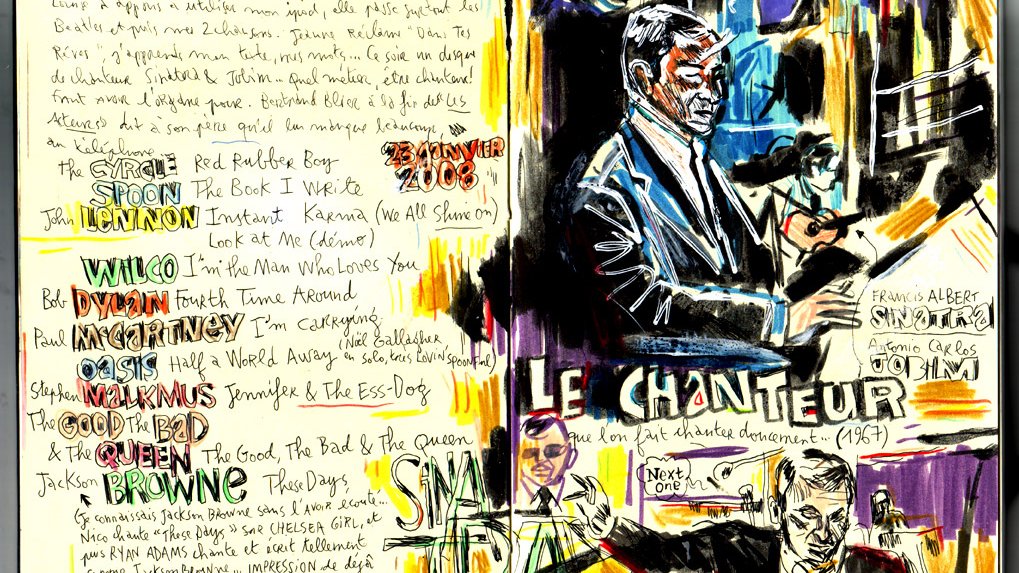 Louise a appris à utiliser mon ipod, elle passe surtout les
Beatles et puis mes 2 chansons. Jeanne réclame "Dans Tes
Rêves" j'apprends mon texte, mes mots... Ce soir un disque
de chanteur Sinatra & Jobim... quel métier, être chanteur!
Faut avoir l'organe pour. Bertrand Blier à la fin de Les
Acteurs dit à son père qu'il lui manque beaucoup,
au téléphone.
23 JANVIER
2008
The CYRCLE Red Rubber Boy
SPOON The Book I Write
John LENNON Instant Karma (We All Shine on)
Look at Me (démo)
WILCO I'm the Man Who Loves You
Bob DYLAN Fourth Time Around
Paul McCARTNEY I'm carrying
OASIS Half a World Away (Noël Gallagher
en solo, très LOVIN' SPOONFUL)
Stephen MALKMUS Jennifer & The Ess-Dog
The GOOD The BAD
& The QUEEN The Good, The Bad & The Queen
Jackson BROWNE These Days,
(je connaissais Jackson Browne sans l'avoir écouté...
Nico chante "These Days" sur CHELSEA GIRL, et
puis RYAN ADAMS chante et écrit tellement
comme Jackson Browne... IMPRESSION de déjà
FRANCIS ALBERT
SINATRA
Antonio Carlos
JOBIM
LE CHANTEUR
que l'on fait chanter doucement... (1967)
Next
one
SINA
TRA